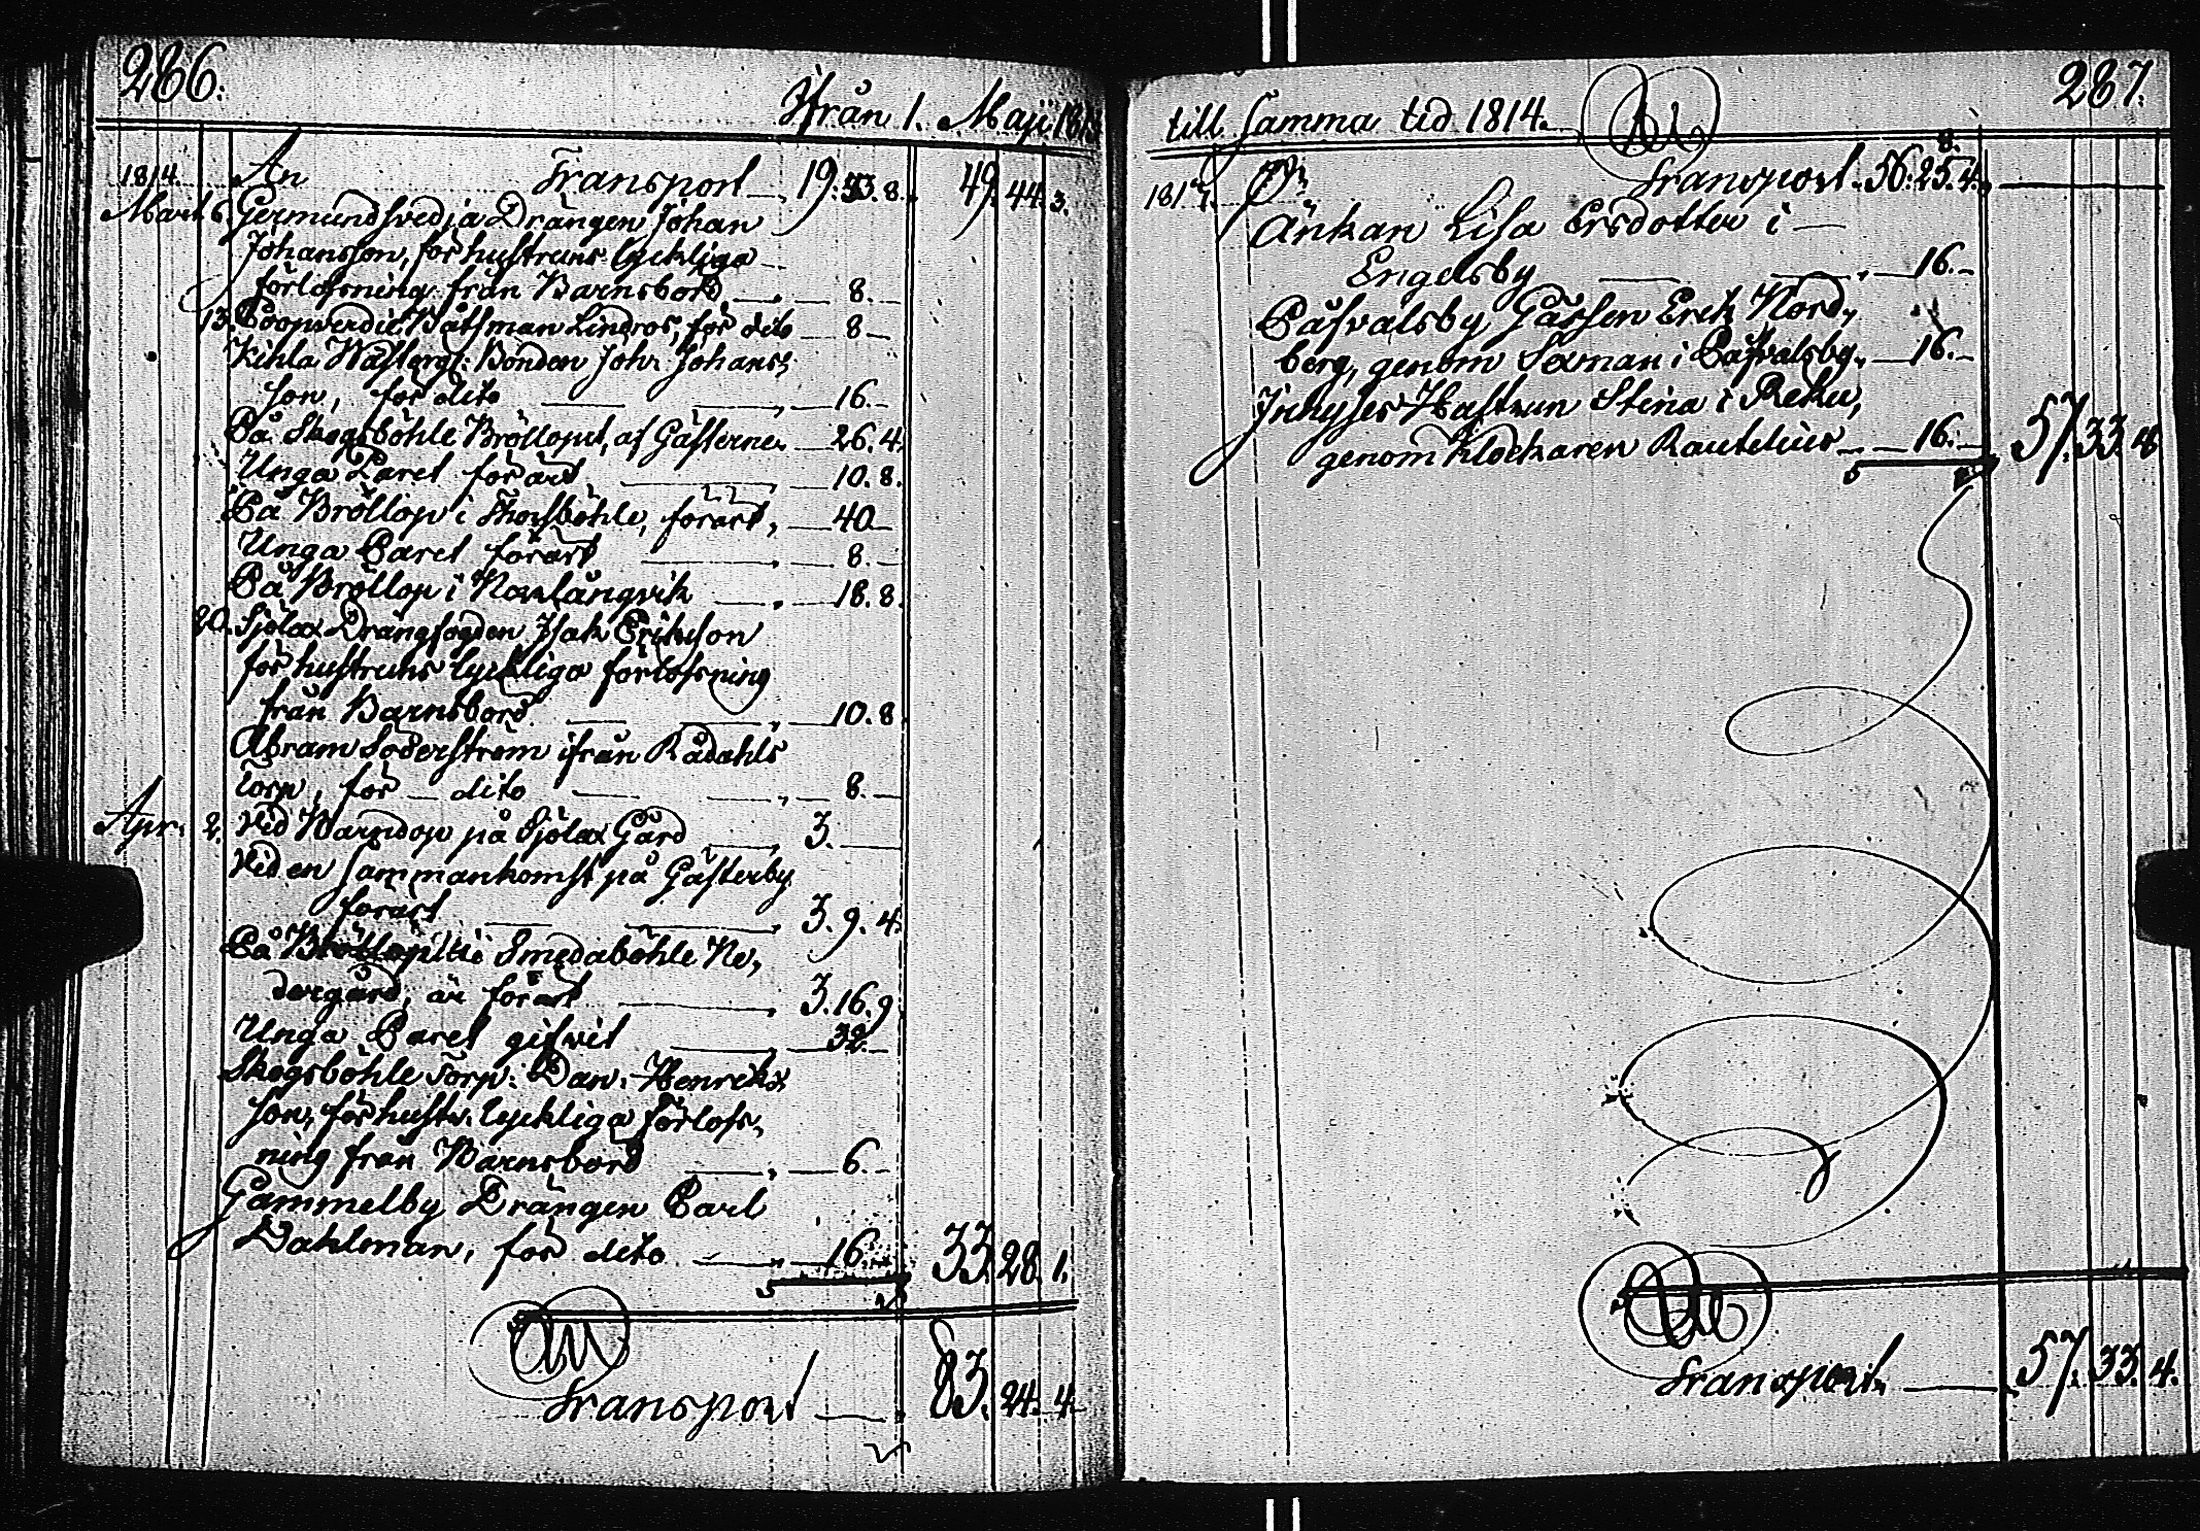 286.
Ifrån 1. Maji 1813
1814. An Transport 19. 33. 8. 49. 44. 3.
Mart. 6. Germundsvedja Drängen Johan
Johansson, för hustruns lyckliga
förlossning från Barnsbörd 8.
13. Båtsman Lindros, för dito 8
Kihla Wästergl: Bonden Joh: Johans,
son, för dito 16.
På Skogsböhle Bröllopet, af Gästerne 26. 4.
Unga Paret förärt 10. 8.
På Bröllop i Skogsböhle, förärt, 40
Unga Paret förärt 8.
På Bröllop i Norrlångvik 18. 8.
20. Sjölax Drängfogden Isak Erikson
för hustruns lyckliga förlossning
från Barnsbörd 10. 8
Abram Söderström ifrån Rådahls
Torp, för dito 8.
Apr. 2. Vid Barndop på Sjölax Gård 3.
Vid en sammankomst på Gästerby
förärt 3. 9. 4.
På Bröllopet i Smedaböhle Ne,
dergård, är förärt 3. 16. 9
Unga Paret gifvit 32.
Skogsböhle Torp: Dan. Henriks,
son, för hustr: lyckliga förloss,
ning från Barnsbörd 6.
Gammelby Drängen Carl
Dahlman, för dito 16. 33. 28. 1.
Transport 83. 24. 4.
287.
till samma tid 1814.
Transport. 56. 25. 4.
Änkan Lisa Ersdotter i
Engelsby 16.
Påsvalsby Gåssen Erik Nord,
berg, genom Sexman i Påsvalsby. 16.
Inhyses Hustrun Stina i Reku,
genom Klockaren Rautelius 16. 57. 33. 4
Transport 57. 33. 4.